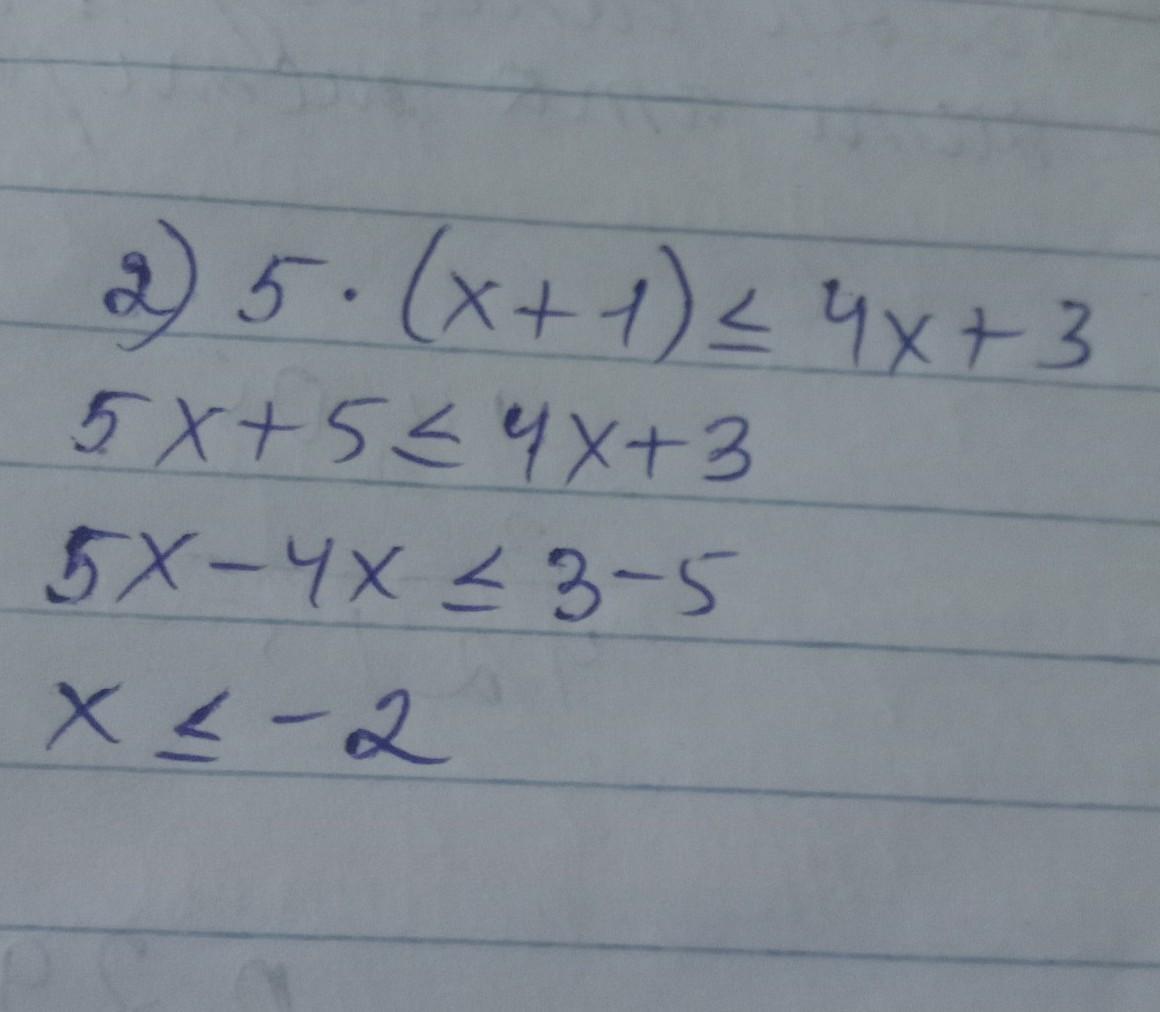 2) 5 · (x + 1) ≤ 4x + 3
5x + 5 ≤ 4x + 3
5x - 4x ≤ 3 - 5
x ≤ -2